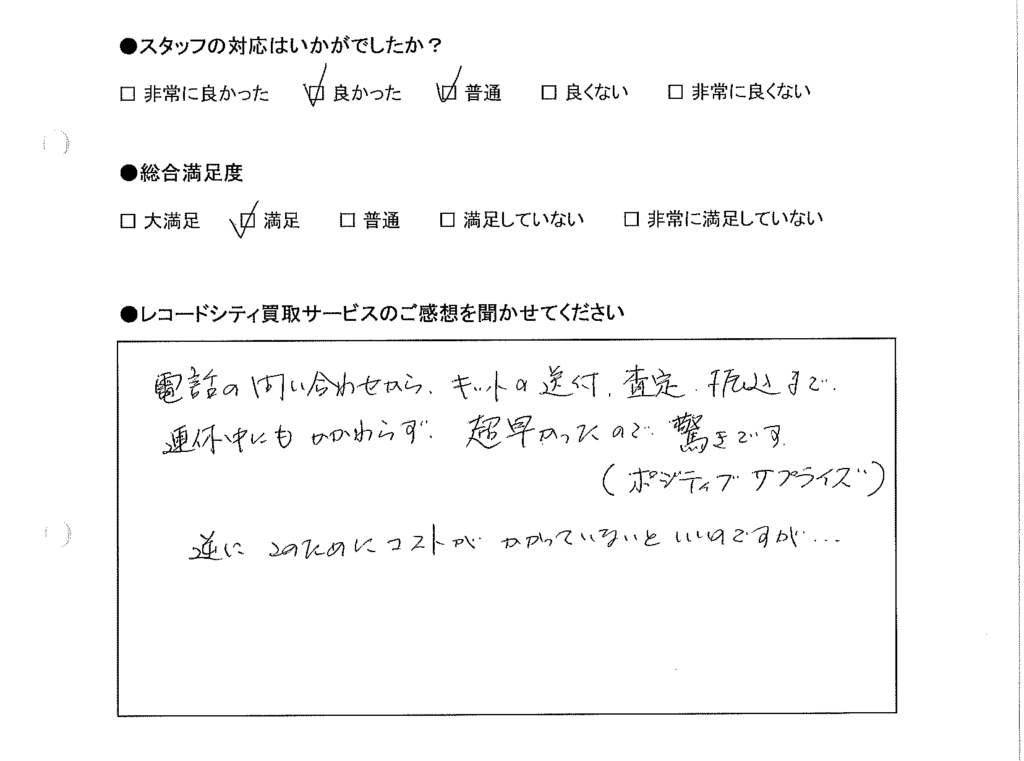 ●スタッフの対応はいかがでしたか？
□ 非常に良かった ☑ 良かった ☑ 普通 □ 良くない □ 非常に良くない
●総合満足度
□ 大満足 ☑ 満足 □ 普通 □ 満足していない □ 非常に満足していない
●レコードシティ買取サービスのご感想を聞かせてください
電話の問い合わせから、キットの送付、査定、振込まで、
連休中にもかかわらず、超早かったので、驚きです。
(ポジティブサプライズ)
逆にこのためにコストがかかっていないといいのですが...